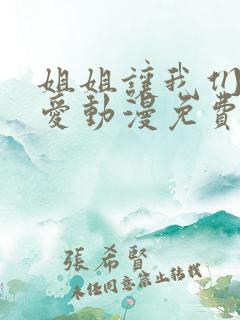 姐姐讓我们
愛動漫免費
張希賢
未经同意禁止转载